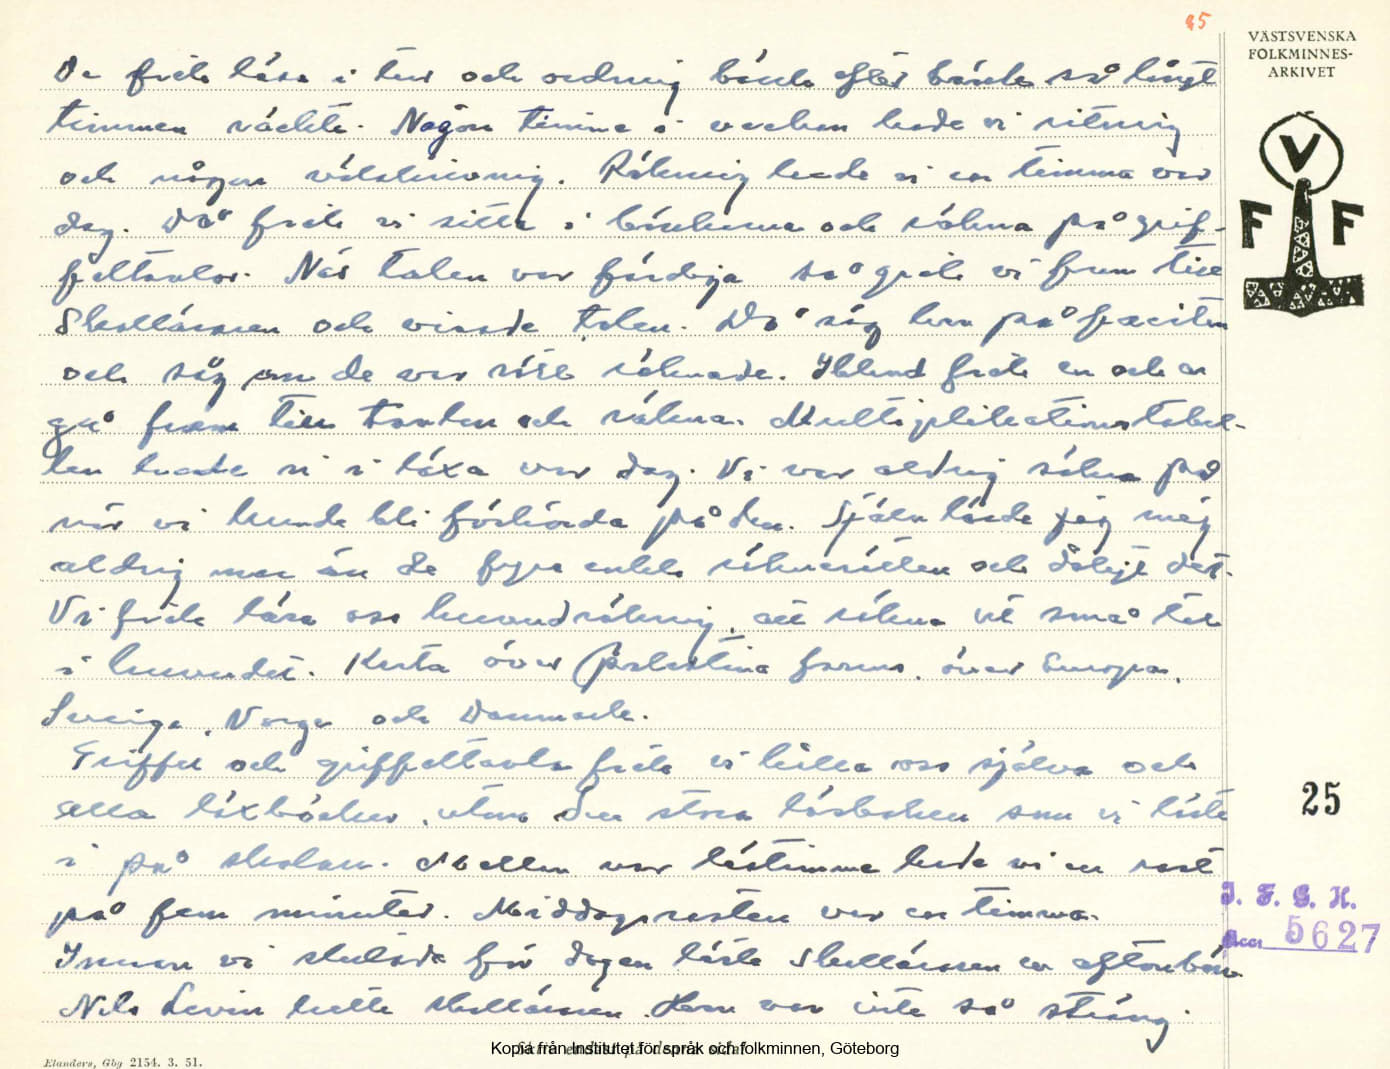 85
VÄSTSVENSKA
FOLKMINNES-
ARKIVET
V
F F
De fick läsa i tur och ordning bänk efter bänk så långt
timmen räckte. Någon timme i veckan hade vi ritning
och någon välskrivning. Räkning hade vi en timma var
dag. Då fick vi sitta i bänkarna och räkna på grif-
feltavlor. När talen var färdiga så gick vi fram till
Skolläraren och visade talen. Då såg han på faciten
och såg om de var rätt räknade. Ibland fick en och en
gå fram till tavlan och räkna. Multiplikationstabel-
len hade vi i läxa var dag. Vi var aldrig säkra på
när vi kunde bli förhörda på den. Själv lärde jag mig
aldrig mer än de fyra enkla räknesätten och dåligt det.
Vi fick lära oss huvudräkning, att räkna ut små tal
i huvudet. Karta över Palestina fanns, över Europa,
Sverige, Norge och Danmark.
Griffel och griffeltavla fick vi hålla oss själva och
alla läxböcker, utom den stora läsboken som vi läste
i på skolan. Mellan var lästimme hade vi en rast
på fem minuter. Middagsrasten var en timma.
Innan vi slutade för dagen läste Skolläraren en aftonbön
Nils Levin hette skolläraren. Han var inte så sträng.
25
I. F. G. H.
Acc. 5627
Kopia från Institutet för språk och folkminnen, Göteborg
Elanders, Gbg 2154. 3. 51.